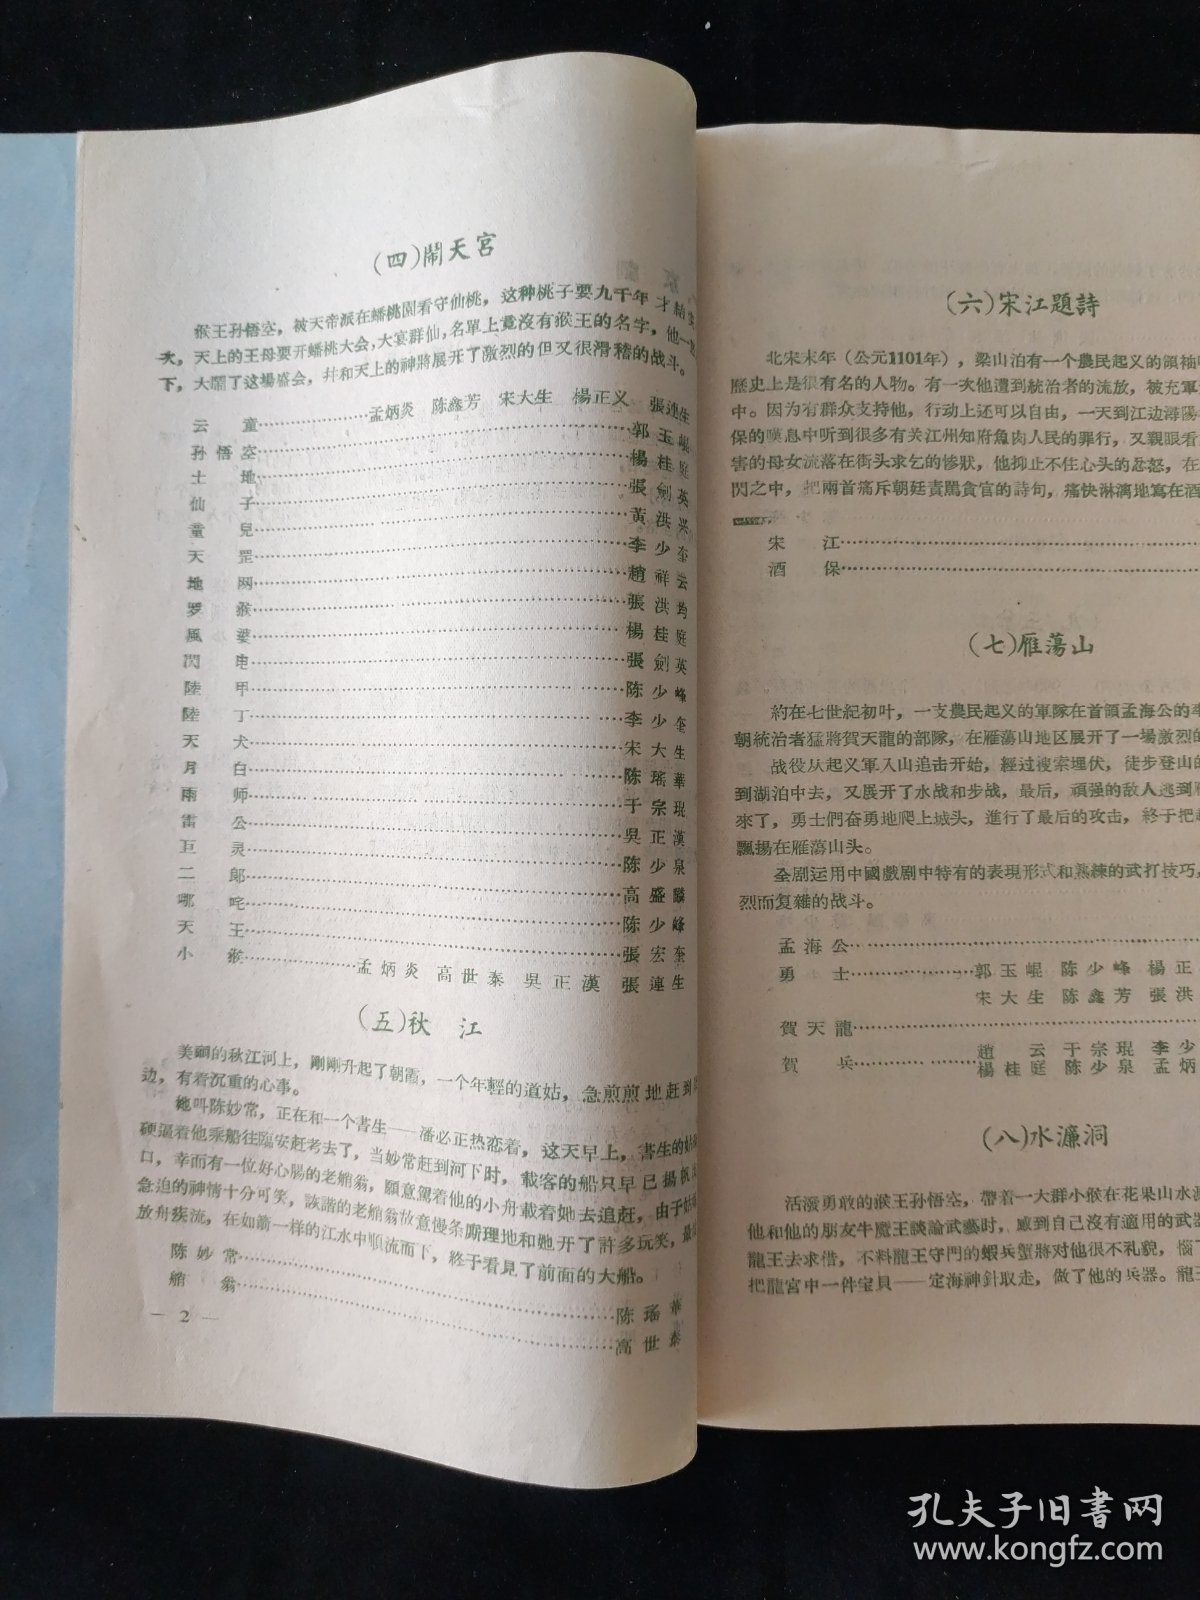 (四)鬧天宮
猴王孙悟空，被天帝派在蟠桃園看守仙桃，这种桃子要九千年才結实
天上的王母要开蟠桃大会，大宴群仙，名單上竟沒有猴王的名字，他一
下，大鬧了这場盛会，并和天上的神將展开了激烈的但又很滑稽的战斗。
云童……孟炳炎 陈鑫芳 宋大生 楊正义 張連生
孙悟空……郭玉崐
土地……楊桂庭
仙子……張劍英
童兒……黃洪兴
天罡……李少奎
地网……趙祥云
罗猴……張洪均
風婆……楊桂庭
閃电……張劍英
陸甲……陈少峰
陸丁……李少奎
天犬……宋大生
月白……陈瑤華
雨师……于宗琨
雷公……吳正漢
巨灵……陈少泉
二郎……高盛麟
哪咤……陈少峰
天王……張宏奎
小猴……孟炳炎 高世泰 吳正漢 張連生
(五)秋 江
美丽的秋江河上，剛剛升起了朝霞，一个年輕的道姑，急煎煎地赶到
边，有着沉重的心事。
她叫陈妙常，正在和一个書生——潘必正热恋着，这天早上，書生的姑
硬逼着他乘船往臨安赶考去了，当妙常赶到河下时，載客的船只早已揚帆
口，幸而有一位好心腸的老艄翁，願意駕着他的小舟載着她去追赶，由于
急迫的神情十分可笑，詼諧的老艄翁故意慢条厮理地和她开了許多玩笑，最
放舟疾流，在如箭一样的江水中順流而下，終于看見了前面的大船。
陈妙常……陈瑤華
艄翁……高世泰
— 2 —
(六)宋江題詩
北宋末年（公元1101年），梁山泊有一个農民起义的領袖
歷史上是很有名的人物。有一次他遭到統治者的流放，被充軍
中。因为有群众支持他，行动上还可以自由，一天到江边潯陽
保的嘆息中听到很多有关江州知府魚肉人民的罪行，又親眼看
害的母女流落在街头求乞的惨狀，他抑止不住心头的忿怒，在
閃之中，把兩首痛斥朝廷責駡貪官的詩句，痛快淋漓地寫在酒
宋江……
酒保……
(七)雁蕩山
約在七世紀初叶，一支農民起义的軍隊在首領孟海公的率
朝統治者猛將賀天龍的部隊，在雁蕩山地区展开了一場激烈的
战役从起义軍入山追击开始，經过搜索埋伏，徒步登山的
到湖泊中去，又展开了水战和步战，最后，頑强的敌人逃到
來了，勇士們奋勇地爬上城头，進行了最后的攻击，終于把
飄揚在雁蕩山头。
全剧运用中國戲剧中特有的表現形式和熟練的武打技巧，
烈而复雜的战斗。
孟海公……
勇士……郭玉崐 陈少峰 楊正
宋大生 陈鑫芳 張洪
賀天龍……
賀兵……趙云 于宗琨 李少
楊桂庭 陈少泉 孟炳
(八)水濂洞
活潑勇敢的猴王孙悟空，帶着一大群小猴在花果山水
他和他的朋友牛魔王談論武藝时，感到自己沒有適用的武
龍王去求借，不料龍王守門的蝦兵蟹將对他很不礼貌，惱
把龍宮中一件宝貝——定海神針取走，做了他的兵器。龍
孔夫子旧书网
www.kongfz.com